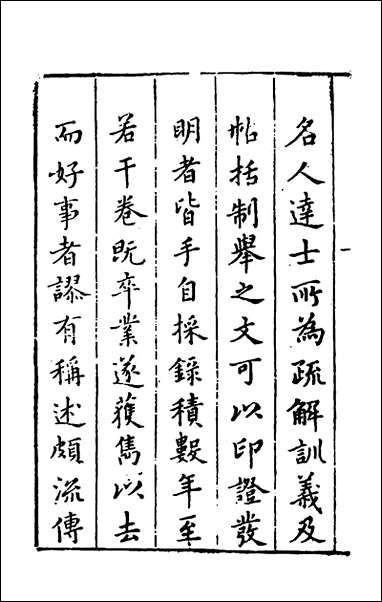 名人達士所為疏解訓義及
帖括制舉之文可以印證發
明者皆手自採錄積數年至
若干卷既卒業遂獲雋以去
而好事者謬有稱述頗流傳